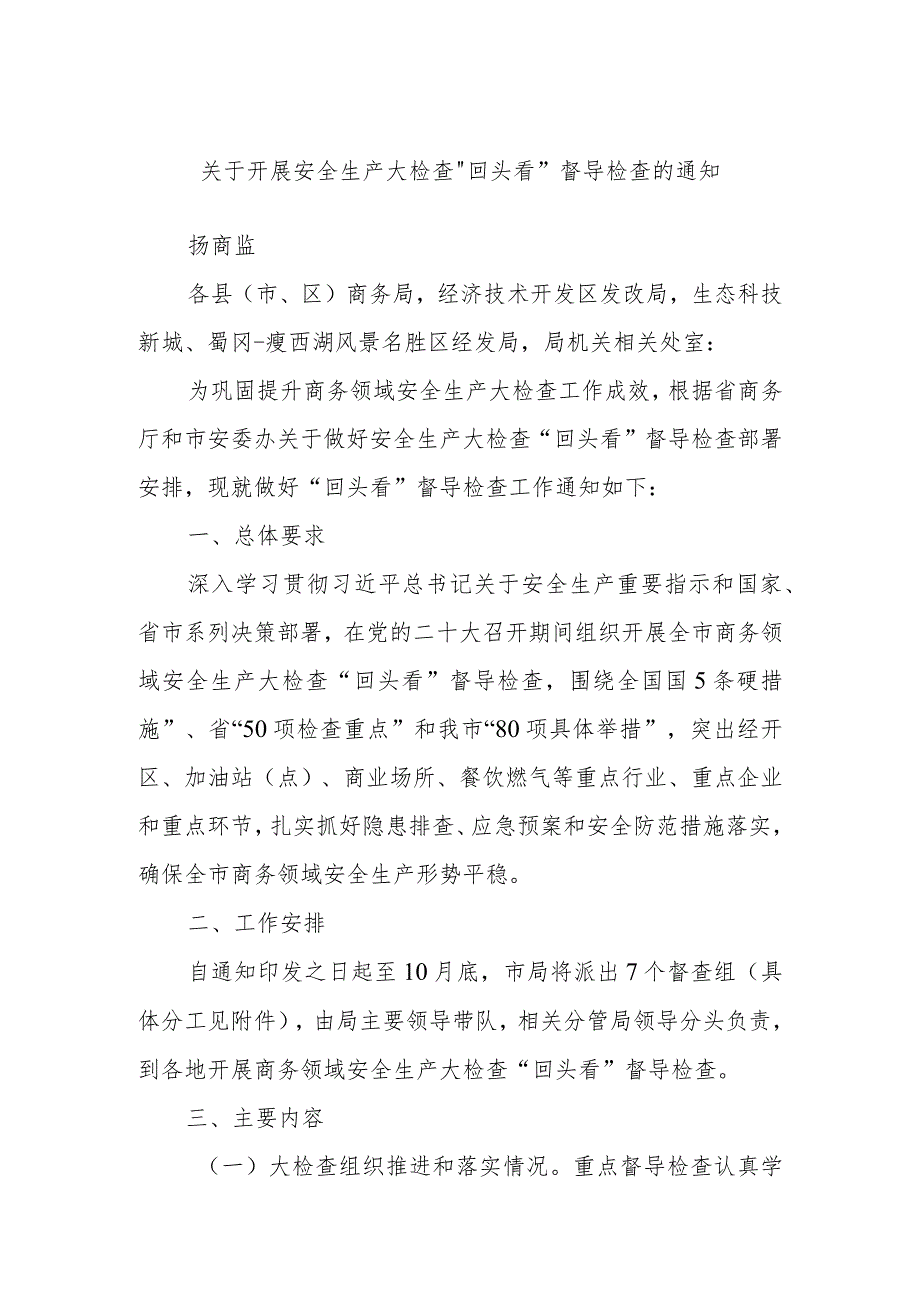 关于开展安全生产大检查"回头看”督导检查的通知
扬商监
各县（市、区）商务局，经济技术开发区发改局，生态科技
新城、蜀冈-瘦西湖风景名胜区经发局，局机关相关处室：
为巩固提升商务领域安全生产大检查工作成效，根据省商务
厅和市安委办关于做好安全生产大检查“回头看”督导检查部署
安排，现就做好“回头看”督导检查工作通知如下：
一、总体要求
深入学习贯彻习近平总书记关于安全生产重要指示和国家、
省市系列决策部署，在党的二十大召开期间组织开展全市商务领
域安全生产大检查“回头看”督导检查，围绕全国国 5 条硬措
施”、省“50 项检查重点”和我市“80 项具体举措”，突出经开
区、加油站（点）、商业场所、餐饮燃气等重点行业、重点企业
和重点环节，扎实抓好隐患排查、应急预案和安全防范措施落实，
确保全市商务领域安全生产形势平稳。
二、工作安排
自通知印发之日起至 10 月底，市局将派出 7 个督查组（具
体分工见附件），由局主要领导带队，相关分管局领导分头负责，
到各地开展商务领域安全生产大检查“回头看”督导检查。
三、主要内容
（一）大检查组织推进和落实情况。重点督导检查认真学